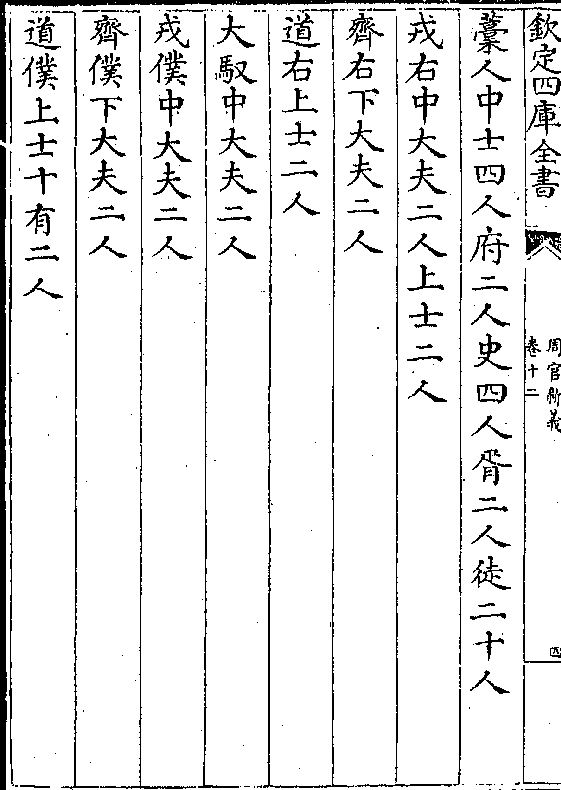 欽定四庫全書
周官新義
卷十二
四
藁人中士四人府二人史四人胥二人徒二十人
戎右中大夫二人上士二人
齊右下大夫二人
道右上士二人
大馭中大夫二人
戎僕中大夫二人
齊僕下大夫二人
道僕上士十有二人